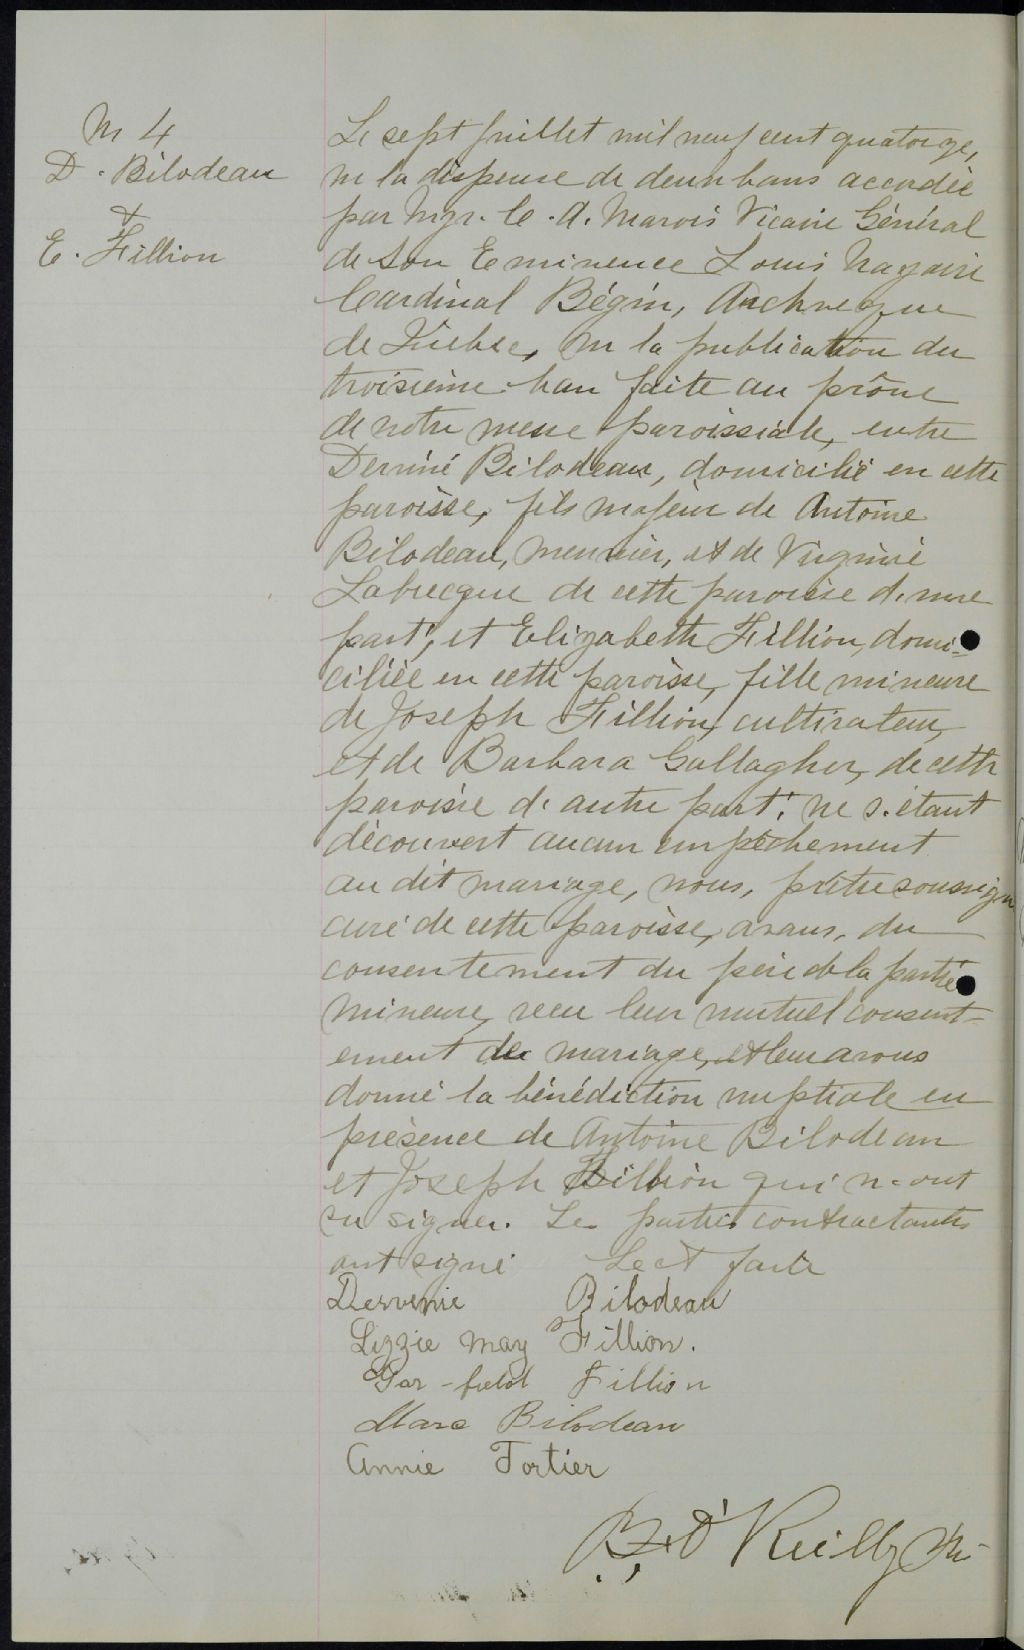 M 4
D. Bilodeau
&
E. Fillion
Le sept juillet mil neuf cent quatorze,
vu la dispense de deux bans accordée
par Mgr. C. A. Marois Vicaire Général
de Son Eminence Louis Nazaire
Cardinal Bégin, Archevêque
de Québec, vu la publication du
troisième ban faite au prône
de notre messe paroissiale, entre
Derviné Bilodeau, domicilié en cette
paroisse, fils majeur de Antoine
Bilodeau, meunier, et de Virginie
Labrecque de cette paroisse d'une
part; et Elizabeth Fillion, domi-
ciliée en cette paroisse, fille mineure
de Joseph Fillion, cultivateur,
et de Barbara Gallagher, de cette
paroisse d'autre part; ne s'étant
découvert aucun empêchement
au dit mariage, nous, prêtre soussigné
curé de cette paroisse, avons, du
consentement du père de la partie
mineure, reçu leur mutuel consent-
ement de mariage, et leur avons
donné la bénédiction nuptiale en
présence de Antoine Bilodeau
et Joseph Fillion qui n'ont
su signer. Les parties contractantes
ont signé Lect faite
Dervenie Bilodeau
Lizzie May Fillion.
Gar-field Fillion
Marc Bilodeau
Annie Fortier
O'Reilly Ptr